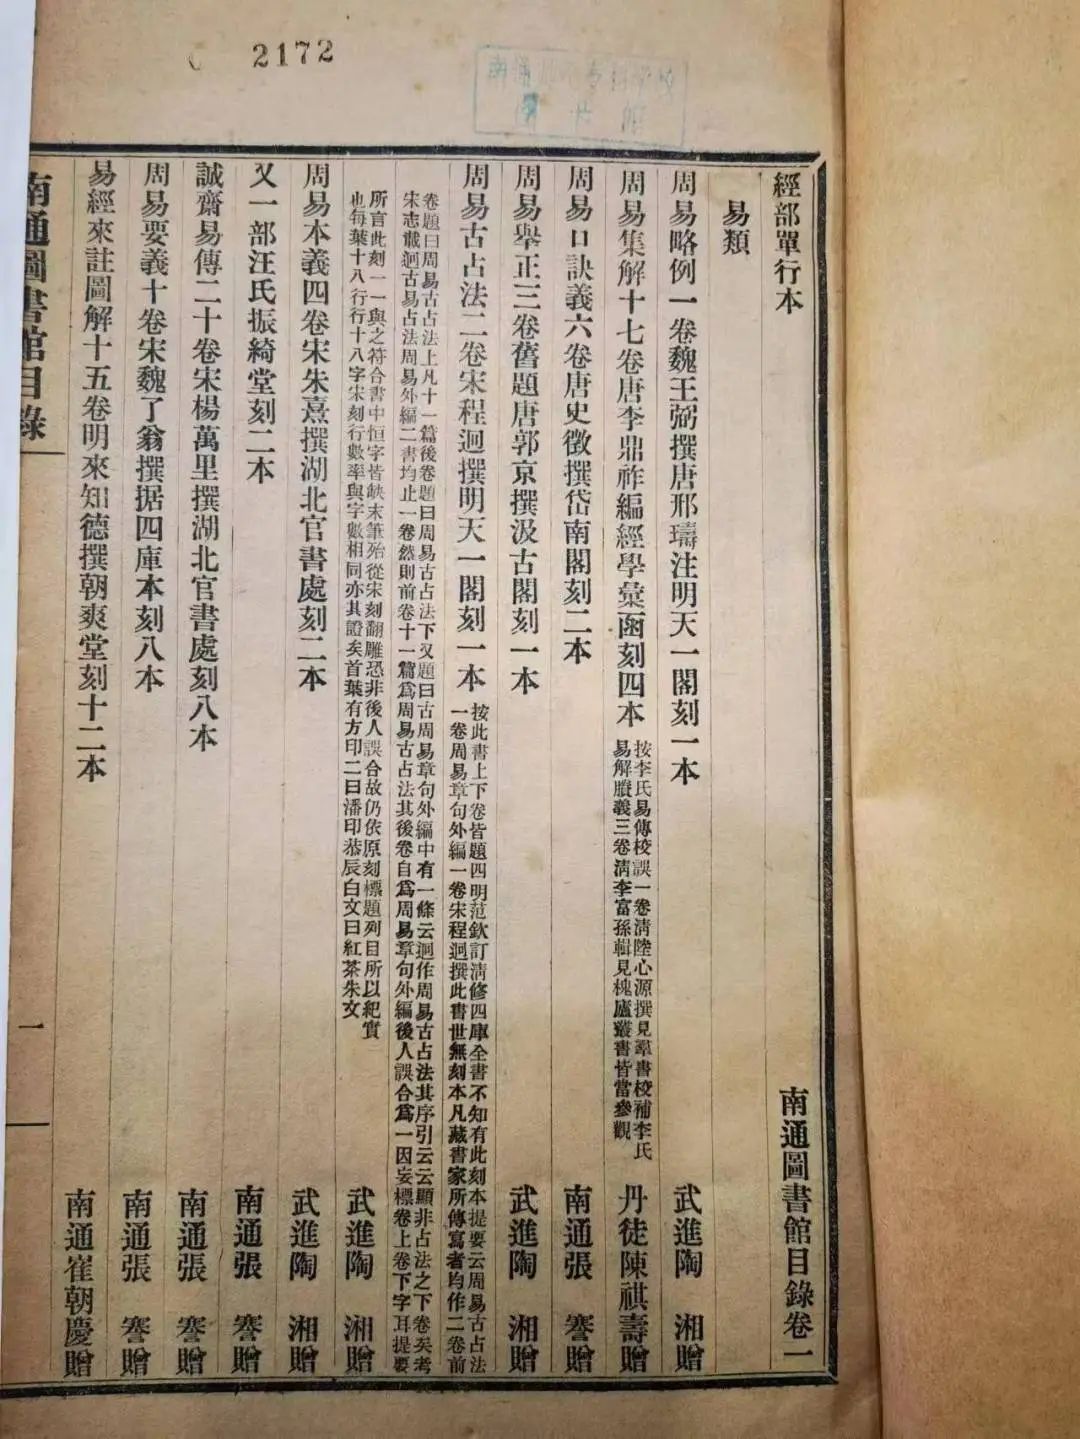 2172
經部單行本 南通圖書館目錄卷一
易類
周易略例一卷魏王弼撰唐邢璹注明天一閣刻一本 武進陶湘贈
周易集解十七卷唐李鼎祚編經學彙函刻四本 按李氏易傳校誤一卷清陸心源撰見羣書校補李氏
易解賸義三卷清李富孫輯見槐廬叢書皆當參觀 丹徒陳祺壽贈
周易口訣義六卷唐史徵撰岱南閣刻二本 南通張謇贈
周易舉正三卷舊題唐郭京撰汲古閣刻一本 武進陶湘贈
周易古占法二卷宋程迥撰明天一閣刻一本 按此書上下卷皆題四明范欽訂清修四庫全書不知有此刻本提要云周易古占法
一卷周易章句外編一卷宋程迥撰此書世無刻本凡藏書家所傳寫者均作二卷前
卷題曰周易古占法上凡十一篇後卷題曰周易古占法下又題曰古周易章句外編中有一條云迥作周易古占法其序引云云顯非占法之下卷矣考
宋志載迥古易占法周易外編二書均止一卷然則前卷十一篇爲周易古占法其後卷自爲周易章句外編後人誤合爲一因妄標卷上卷下字耳提要
所言此刻一一與之符合書中恒字皆缺末筆殆從宋刻翻雕恐非後人誤合故仍依原刻標題列目所以紀實
也每葉十八行行十八字宋刻行數率與字數相同亦其證矣首葉有方印二曰潘印恭辰白文曰紅茶朱文 武進陶湘贈
周易本義四卷宋朱熹撰湖北官書處刻二本 武進陶湘贈
又一部汪氏振綺堂刻二本 南通張謇贈
誠齋易傳二十卷宋楊萬里撰湖北官書處刻八本 南通張謇贈
周易要義十卷宋魏了翁撰据四庫本刻八本 南通張謇贈
易經來註圖解十五卷明來知德撰朝爽堂刻十二本 南通崔朝慶贈
南通圖書館目錄 一